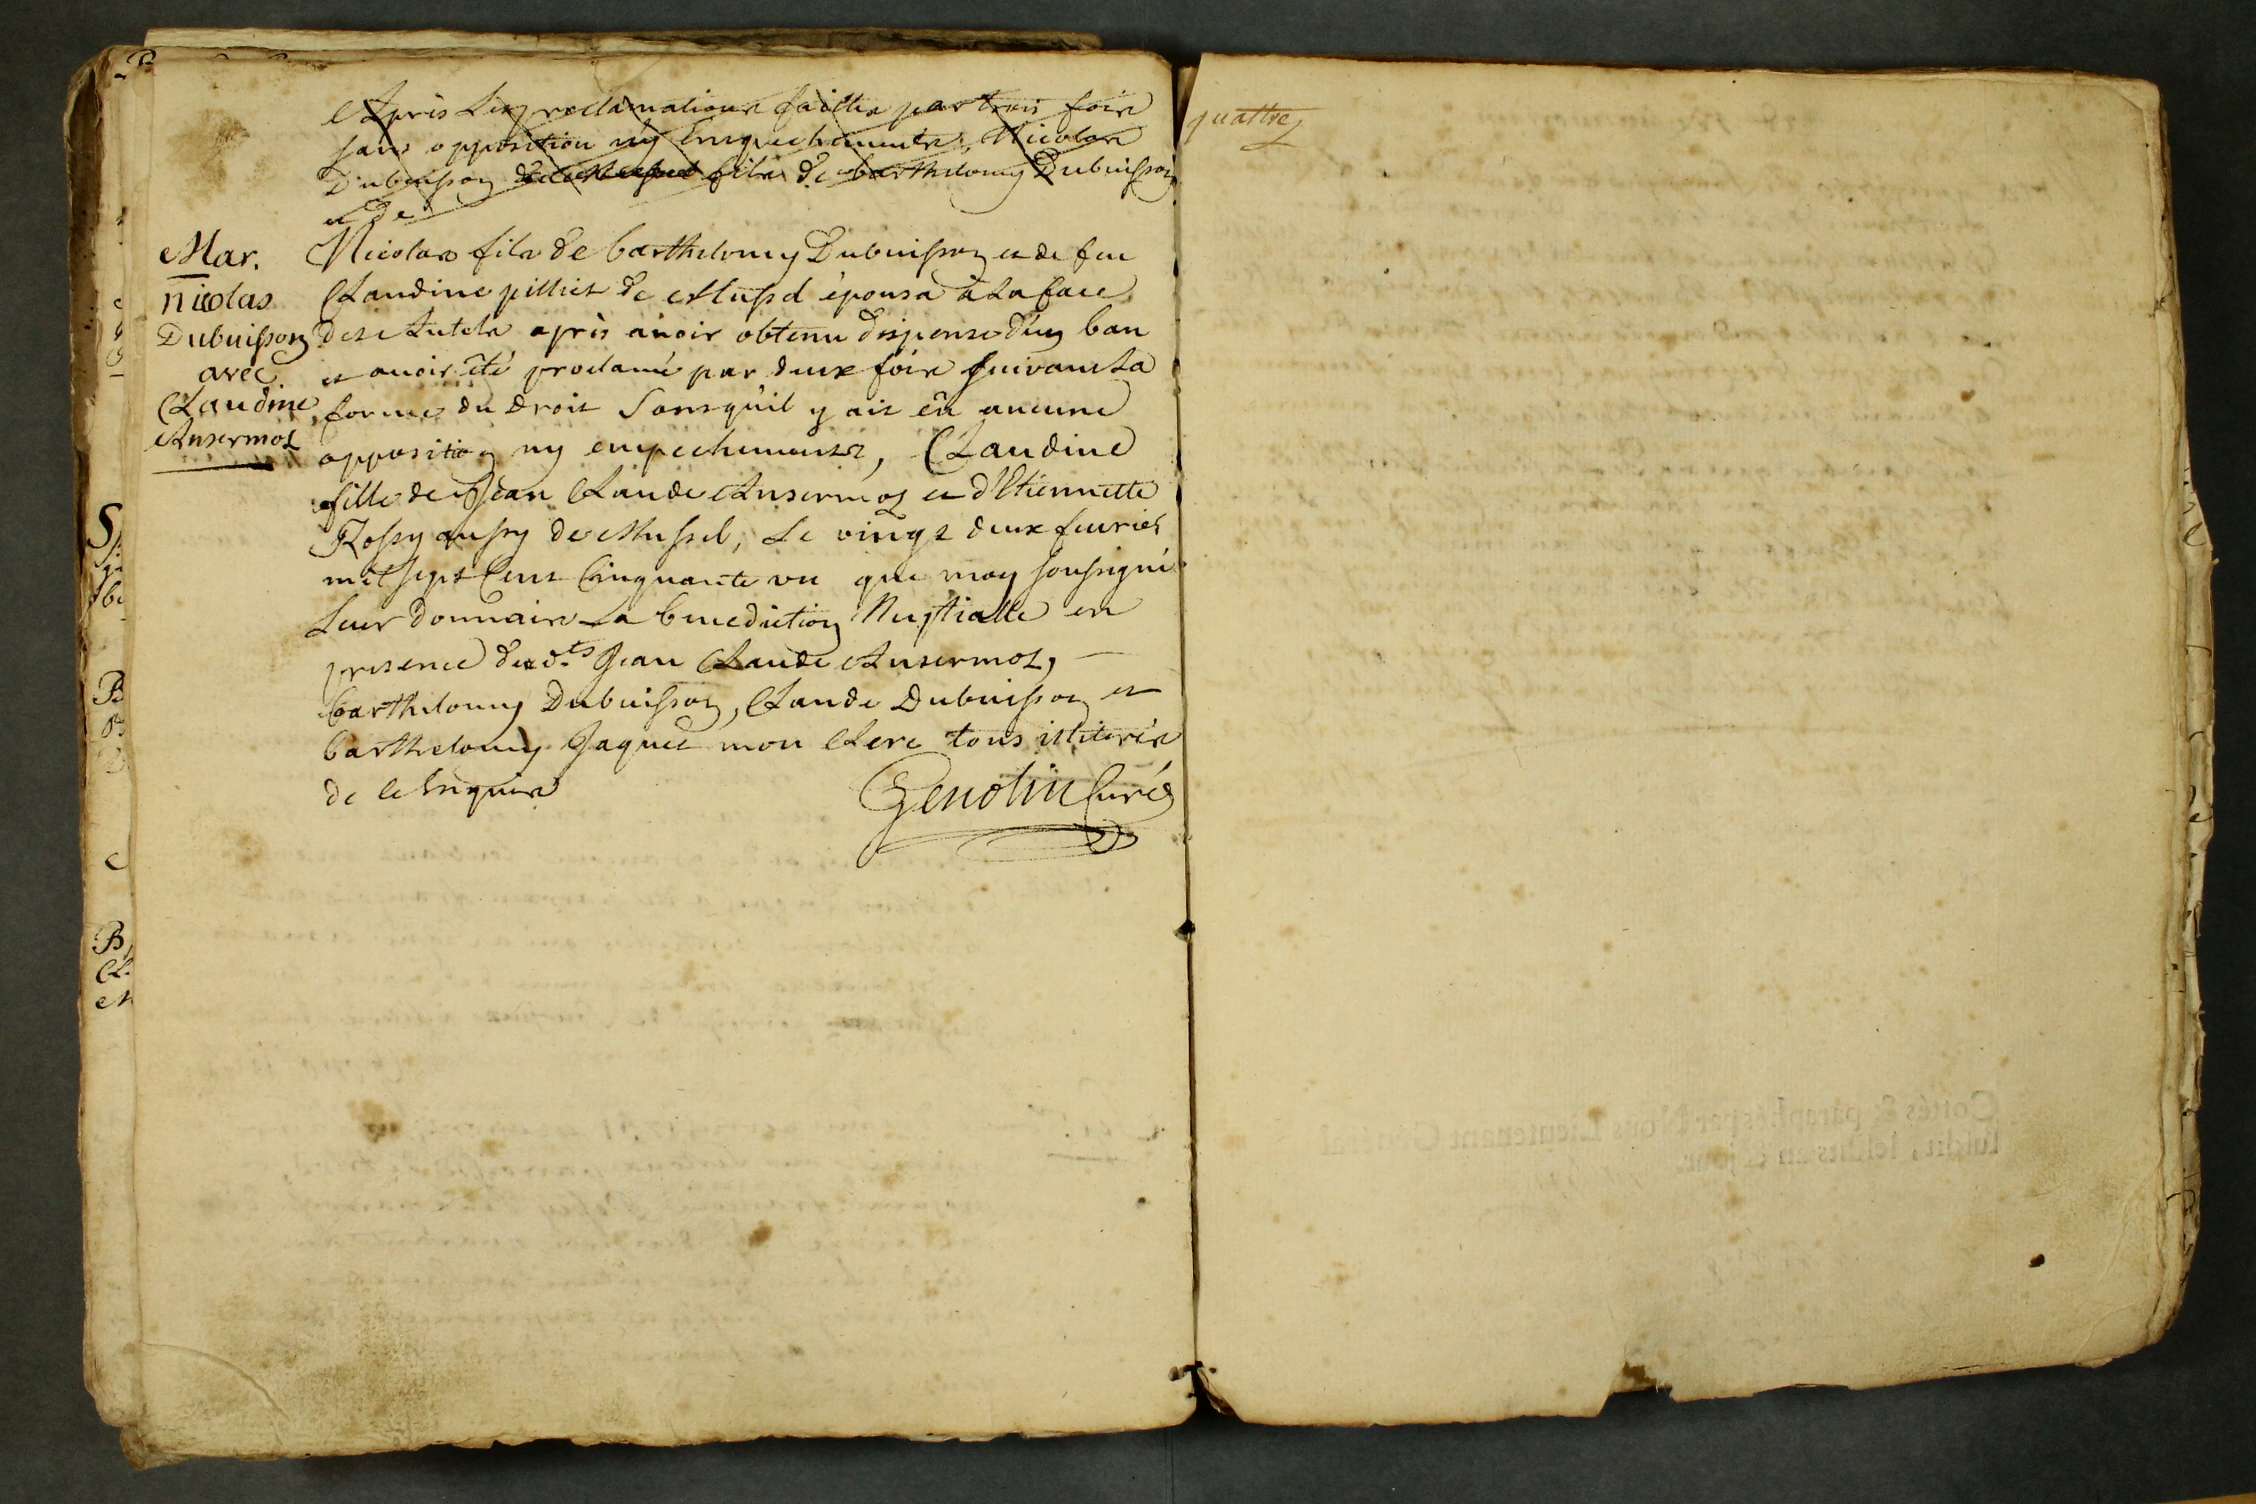 Après les proclamations faittes par trois fois
sans opposition ny Empechements, Nicolas
Dubuisson de Mussel fils de barthelemy Dubuisson
et de
Mar.
nicolas
Dubuisson
avec
Claudine
Ansermoz
Nicolas fils de barthelomy Dubuisson et de feu
Claudine pilliet de Mussel épousa à la face
des Autels après avoir obtenu dispense d'un ban
et avoir été proclamé par deux fois suivant la
forme du droit sans qu'il y ait eû aucune
opposition ny empechements, Claudine
fille de Jean Claude Ansermoz et d'Etiennette
Rossy aussy de Mussel, le vingt deux fevrier
mil sept Cent Cinquante un que moy soussigné
leur donnais la benediction Nuptialle en
presence desd.ts Jean Claude Ansermoz,
barthelomy Dubuisson, Claude Dubuisson et
barthelomy Jaquet mon Clerc tous illiterés
de ce Enquis
Genolin Curé
quattre
Cottés & paraphés par Nous Lieutenant Général
susdit, lesdits an & jour.